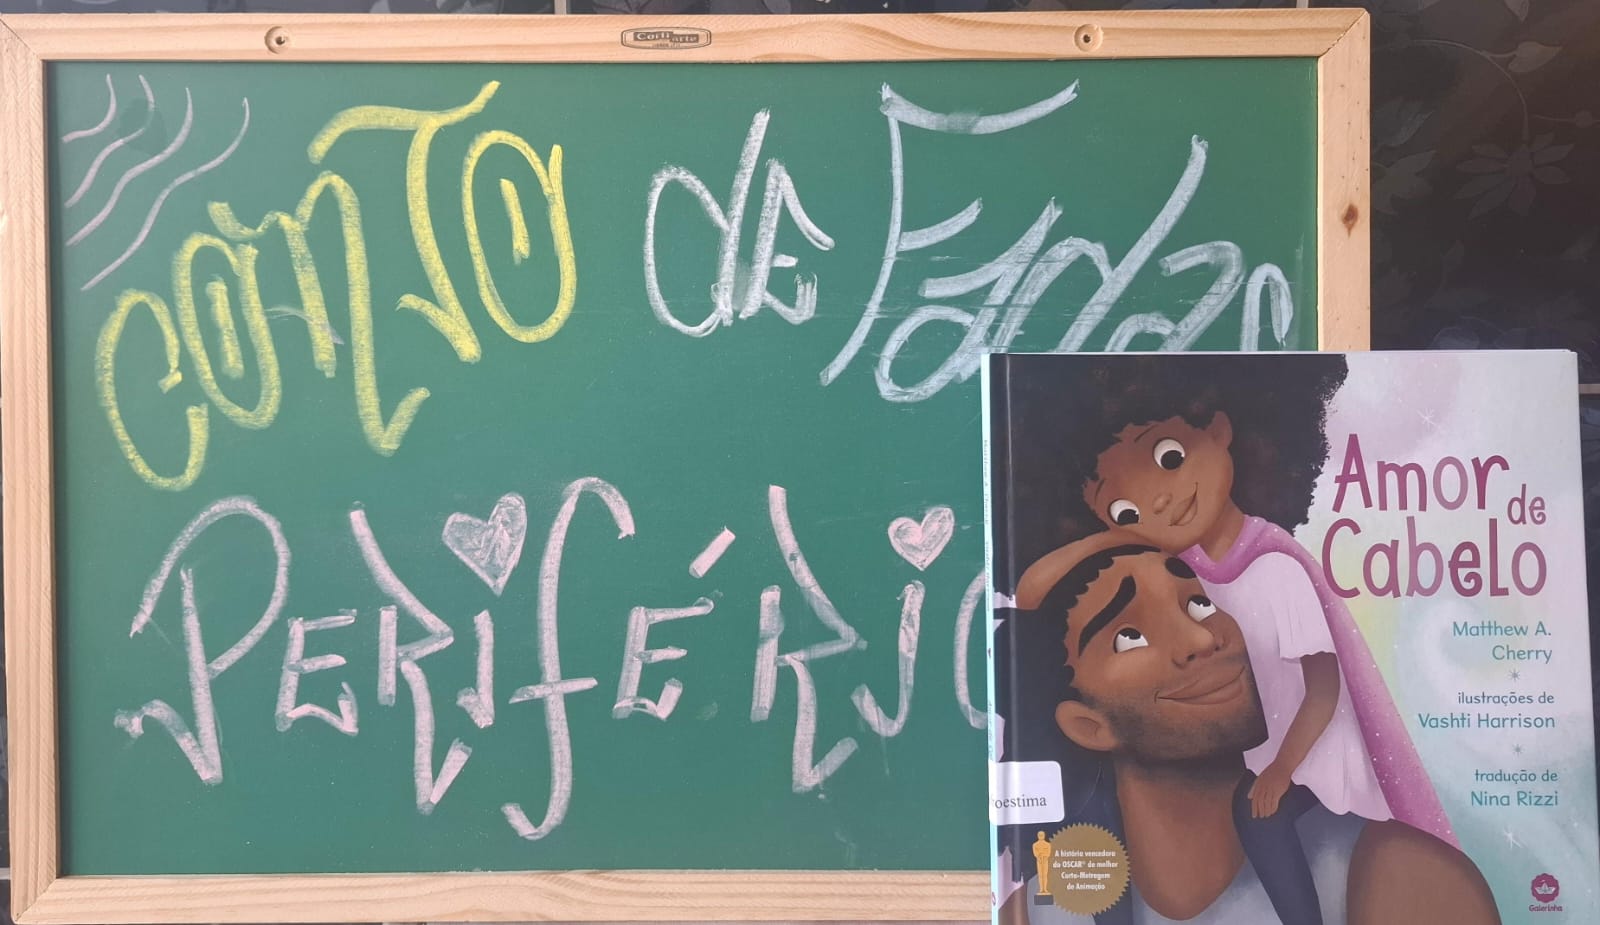 Corti arte
CONTO de Fadas
PERIFÉRIC
Amor de
Cabelo
Matthew A.
Cherry
ilustrações de
Vashti Harrison
tradução de
Nina Rizzi
oestima
A história vencedora
do OSCAR® de melhor
Curta-Metragem
de Animação
Galerinha